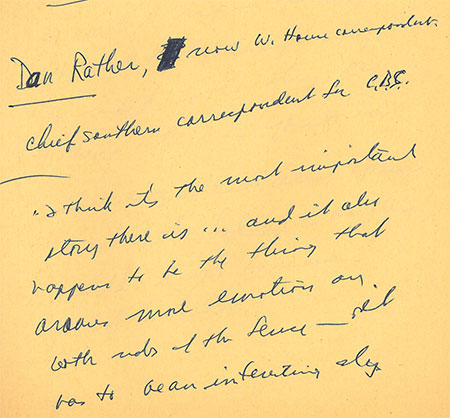 Dan Rather, now W. House correspondent
chief southern correspondent for C.B.S.
"I think it's the most important
story there is ... and it also
happens to be the thing that
arouses most emotions on
both sides of the fence — 
has to be an interesting